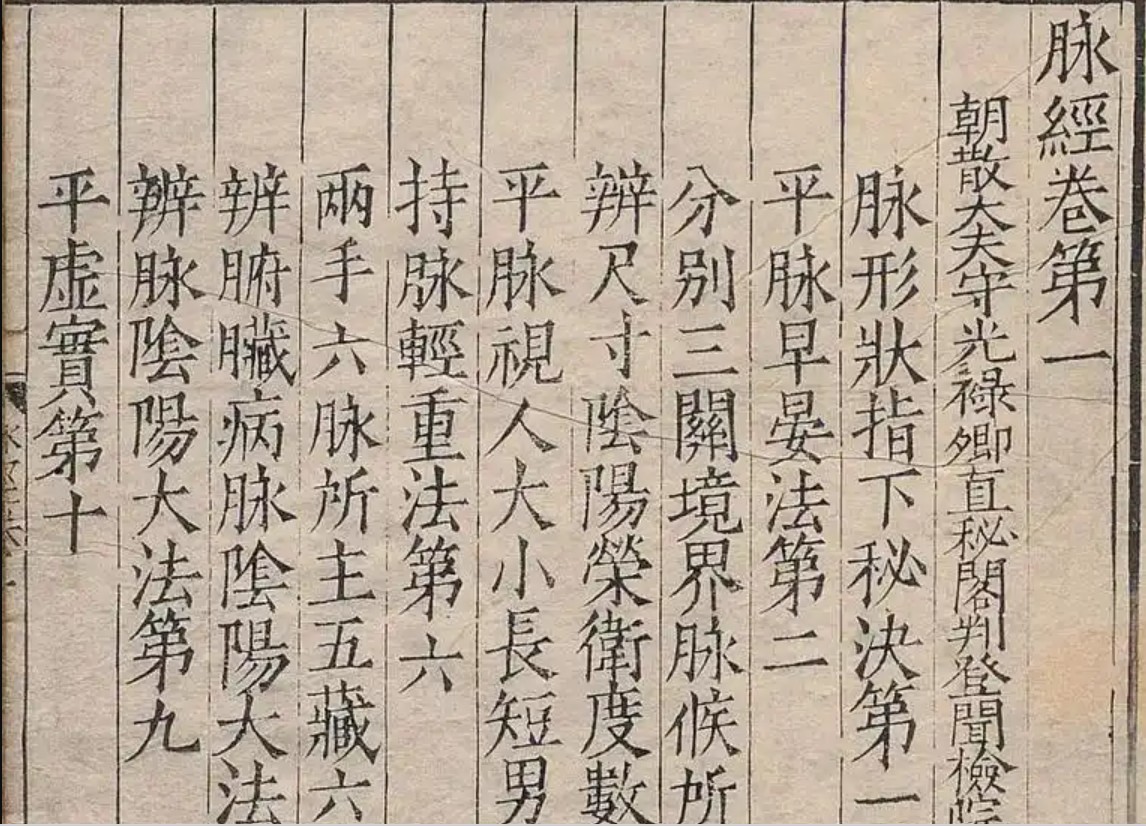 脉經卷第一
朝散大夫守光祿卿直秘閣判登聞檢院
脉形狀指下秘決第一
平脉早晏法第二
分别三關境界脉候所
辨尺寸陰陽榮衛度數
平脉視人大小長短男
持脉輕重法第六
兩手六脉所主五藏六
辨腑臟病脉陰陽大法
辨脉陰陽大法第九
平虛實第十